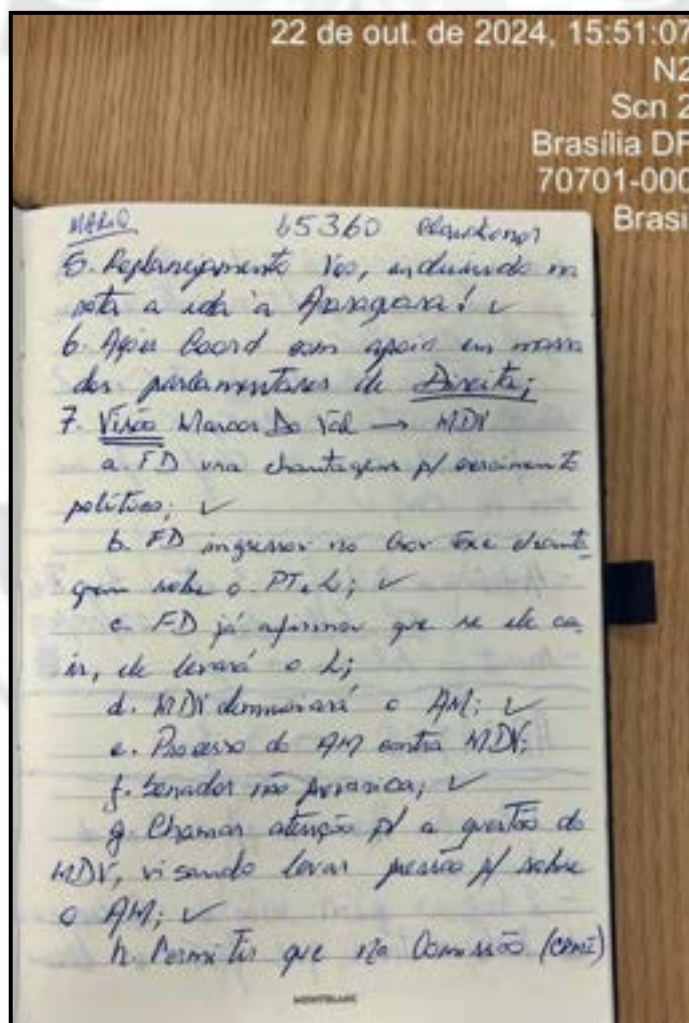 22 de out. de 2024, 15:51:07
N2
Scn 2
Brasília DF
70701-000
Brasil
MARIO 65360
5. Replanejamento Voo, incluindo na
nota a ida à Araraquara! ✓
6. Ações Coord com apoio em massa
dos parlamentares de Direita;
7. Visão Marcos Do Val → MDV
a. FD usa chantagem p/ crescimento
político; ✓
b. FD ingressou no Gov Exe chanta
gem sobre o PT e L; ✓
c. FD já afirmou que se ele ca
ir, ele levará o L;
d. MDV denunciará o AM; ✓
e. Processo do AM contra MDV;
f. Senador não prevarica; ✓
g. Chamar atenção p/ a questão do
MDV, visando levar pressão p/ sobre
o AM; ✓
h. Permitir que na Comissão (CPMI)
MONTBLANC